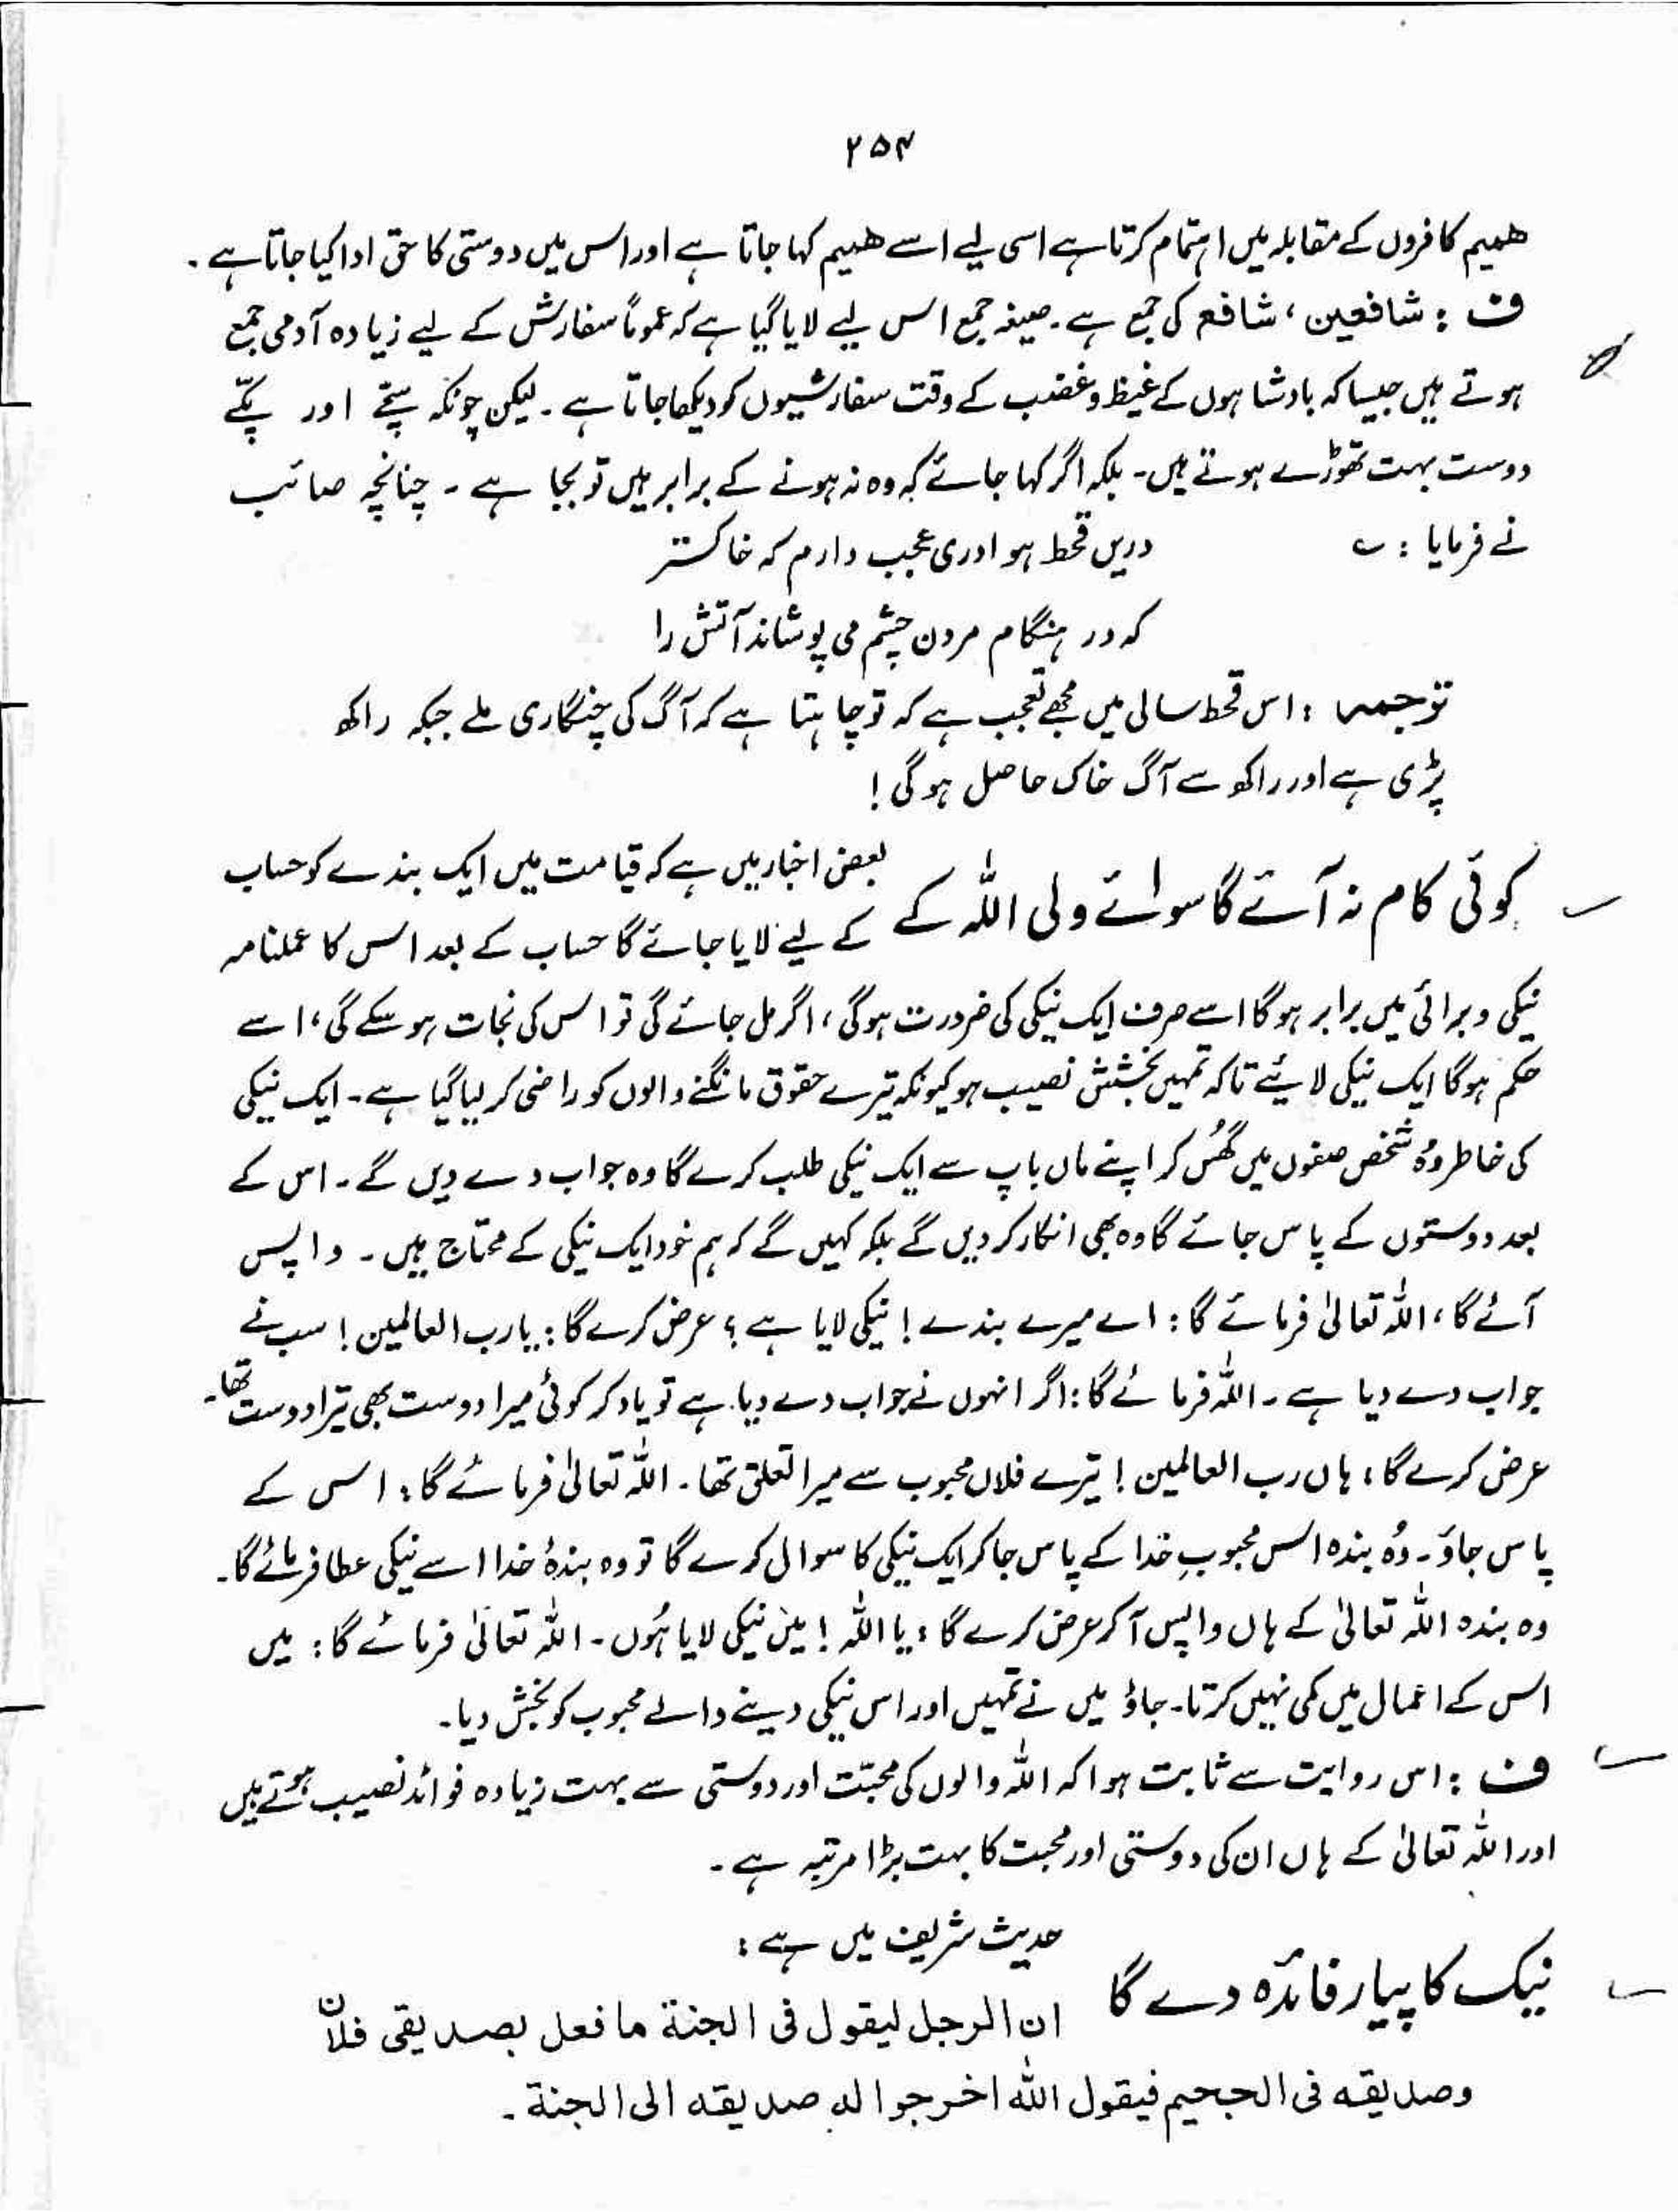 ۲۵۴
حمیم کافروں کے مقابلہ میں اہتمام کرتا ہے اسی لیے اسے حمیم کہا جاتا ہے اور اس میں دوستی کا حق ادا کیا جاتا ہے۔
ف : شافعین ، شافع کی جمع ہے۔ صیغہ جمع اس لیے لایا گیا ہے کہ عموماً سفارش کے لیے زیادہ آدمی جمع
ہوتے ہیں جیسا کہ بادشاہوں کے غیظ و غضب کے وقت سفارشیوں کو دیکھا جاتا ہے۔ لیکن چونکہ سچّے اور پکّے
دوست بہت تھوڑے ہوتے ہیں۔ بلکہ اگر کہا جائے کہ وہ نہ ہونے کے برابر ہیں تو بجا ہے۔ چنانچہ صائب
نے فرمایا : ؎ دریں قحط ہوادری عجب دارم کہ خاکستر
کہ در ہنگام مردن چشم می پوشاند آتش را
توجمہ : اس قحط سالی میں مجھے تعجب ہے کہ تو چاہتا ہے کہ آگ کی چنگاری ملے جبکہ راکھ
پڑی ہے اور راکھ سے آگ خاک حاصل ہو گی !
کوئی کام نہ آئے گا سوائے ولی اللہ کے بعض اخبار میں ہے کہ قیامت میں ایک بندے کو حساب
کے لیے لایا جائے گا حساب کے بعد اس کا عملنامہ
نیکی و برائی میں برابر ہو گا اسے صرف ایک نیکی کی ضرورت ہو گی ، اگر مل جائے گی تو اس کی نجات ہو سکے گی ، اسے
حکم ہو گا ایک نیکی لائیے تاکہ تمہیں بخشش نصیب ہو کیونکہ تیرے حقوق مانگنے والوں کو راضی کر لیا گیا ہے۔ ایک نیکی
کی خاطر وُہ شخص صفوں میں گھُس کر اپنے ماں باپ سے ایک نیکی طلب کرے گا وہ جواب دے دیں گے۔ اس کے
بعد دوستوں کے پاس جائے گا وہ بھی انکار کر دیں گے بلکہ کہیں گے کہ ہم خود ایک نیکی کے محتاج ہیں۔ واپس
آئے گا ، اللہ تعالیٰ فرمائے گا : اے میرے بندے ! نیکی لایا ہے ؟ عرض کرے گا : یا رب العالمین ! سب نے
جواب دے دیا ہے۔ اللہ فرمائے گا : اگر انہوں نے جواب دے دیا ہے تو یاد کر کوئی میرا دوست بھی تیرا دوست تھا۔
عرض کرے گا : ہاں رب العالمین ! تیرے فلاں محبوب سے میرا تعلق تھا۔ اللہ تعالیٰ فرمائے گا : اس کے
پاس جاؤ۔ وُہ بندہ اس محبوبِ خدا کے پاس جا کر ایک نیکی کا سوال کرے گا تو وہ بندۂ خدا اسے نیکی عطا فرمائے گا۔
وہ بندہ اللہ تعالیٰ کے ہاں واپس آ کر عرض کرے گا : یا اللہ ! میں نیکی لایا ہُوں۔ اللہ تعالیٰ فرمائے گا : میں
اس کے اعمال میں کمی نہیں کرتا۔ جاؤ میں نے تمہیں اور اس نیکی دینے والے محبوب کو بخش دیا۔
ف : اس روایت سے ثابت ہوا کہ اللہ والوں کی محبّت اور دوستی سے بہت زیادہ فوائد نصیب ہوتے ہیں
اور اللہ تعالیٰ کے ہاں ان کی دوستی اور محبت کا بہت بڑا مرتبہ ہے۔
نیک کا پیار فائدہ دے گا حدیث شریف میں ہے :
ان الرجل لیقول فی الجنة ما فعل بصدیقی فلان
وصدیقه فی الجحیم فیقول الله اخرجوا له صدیقه الی الجنة۔